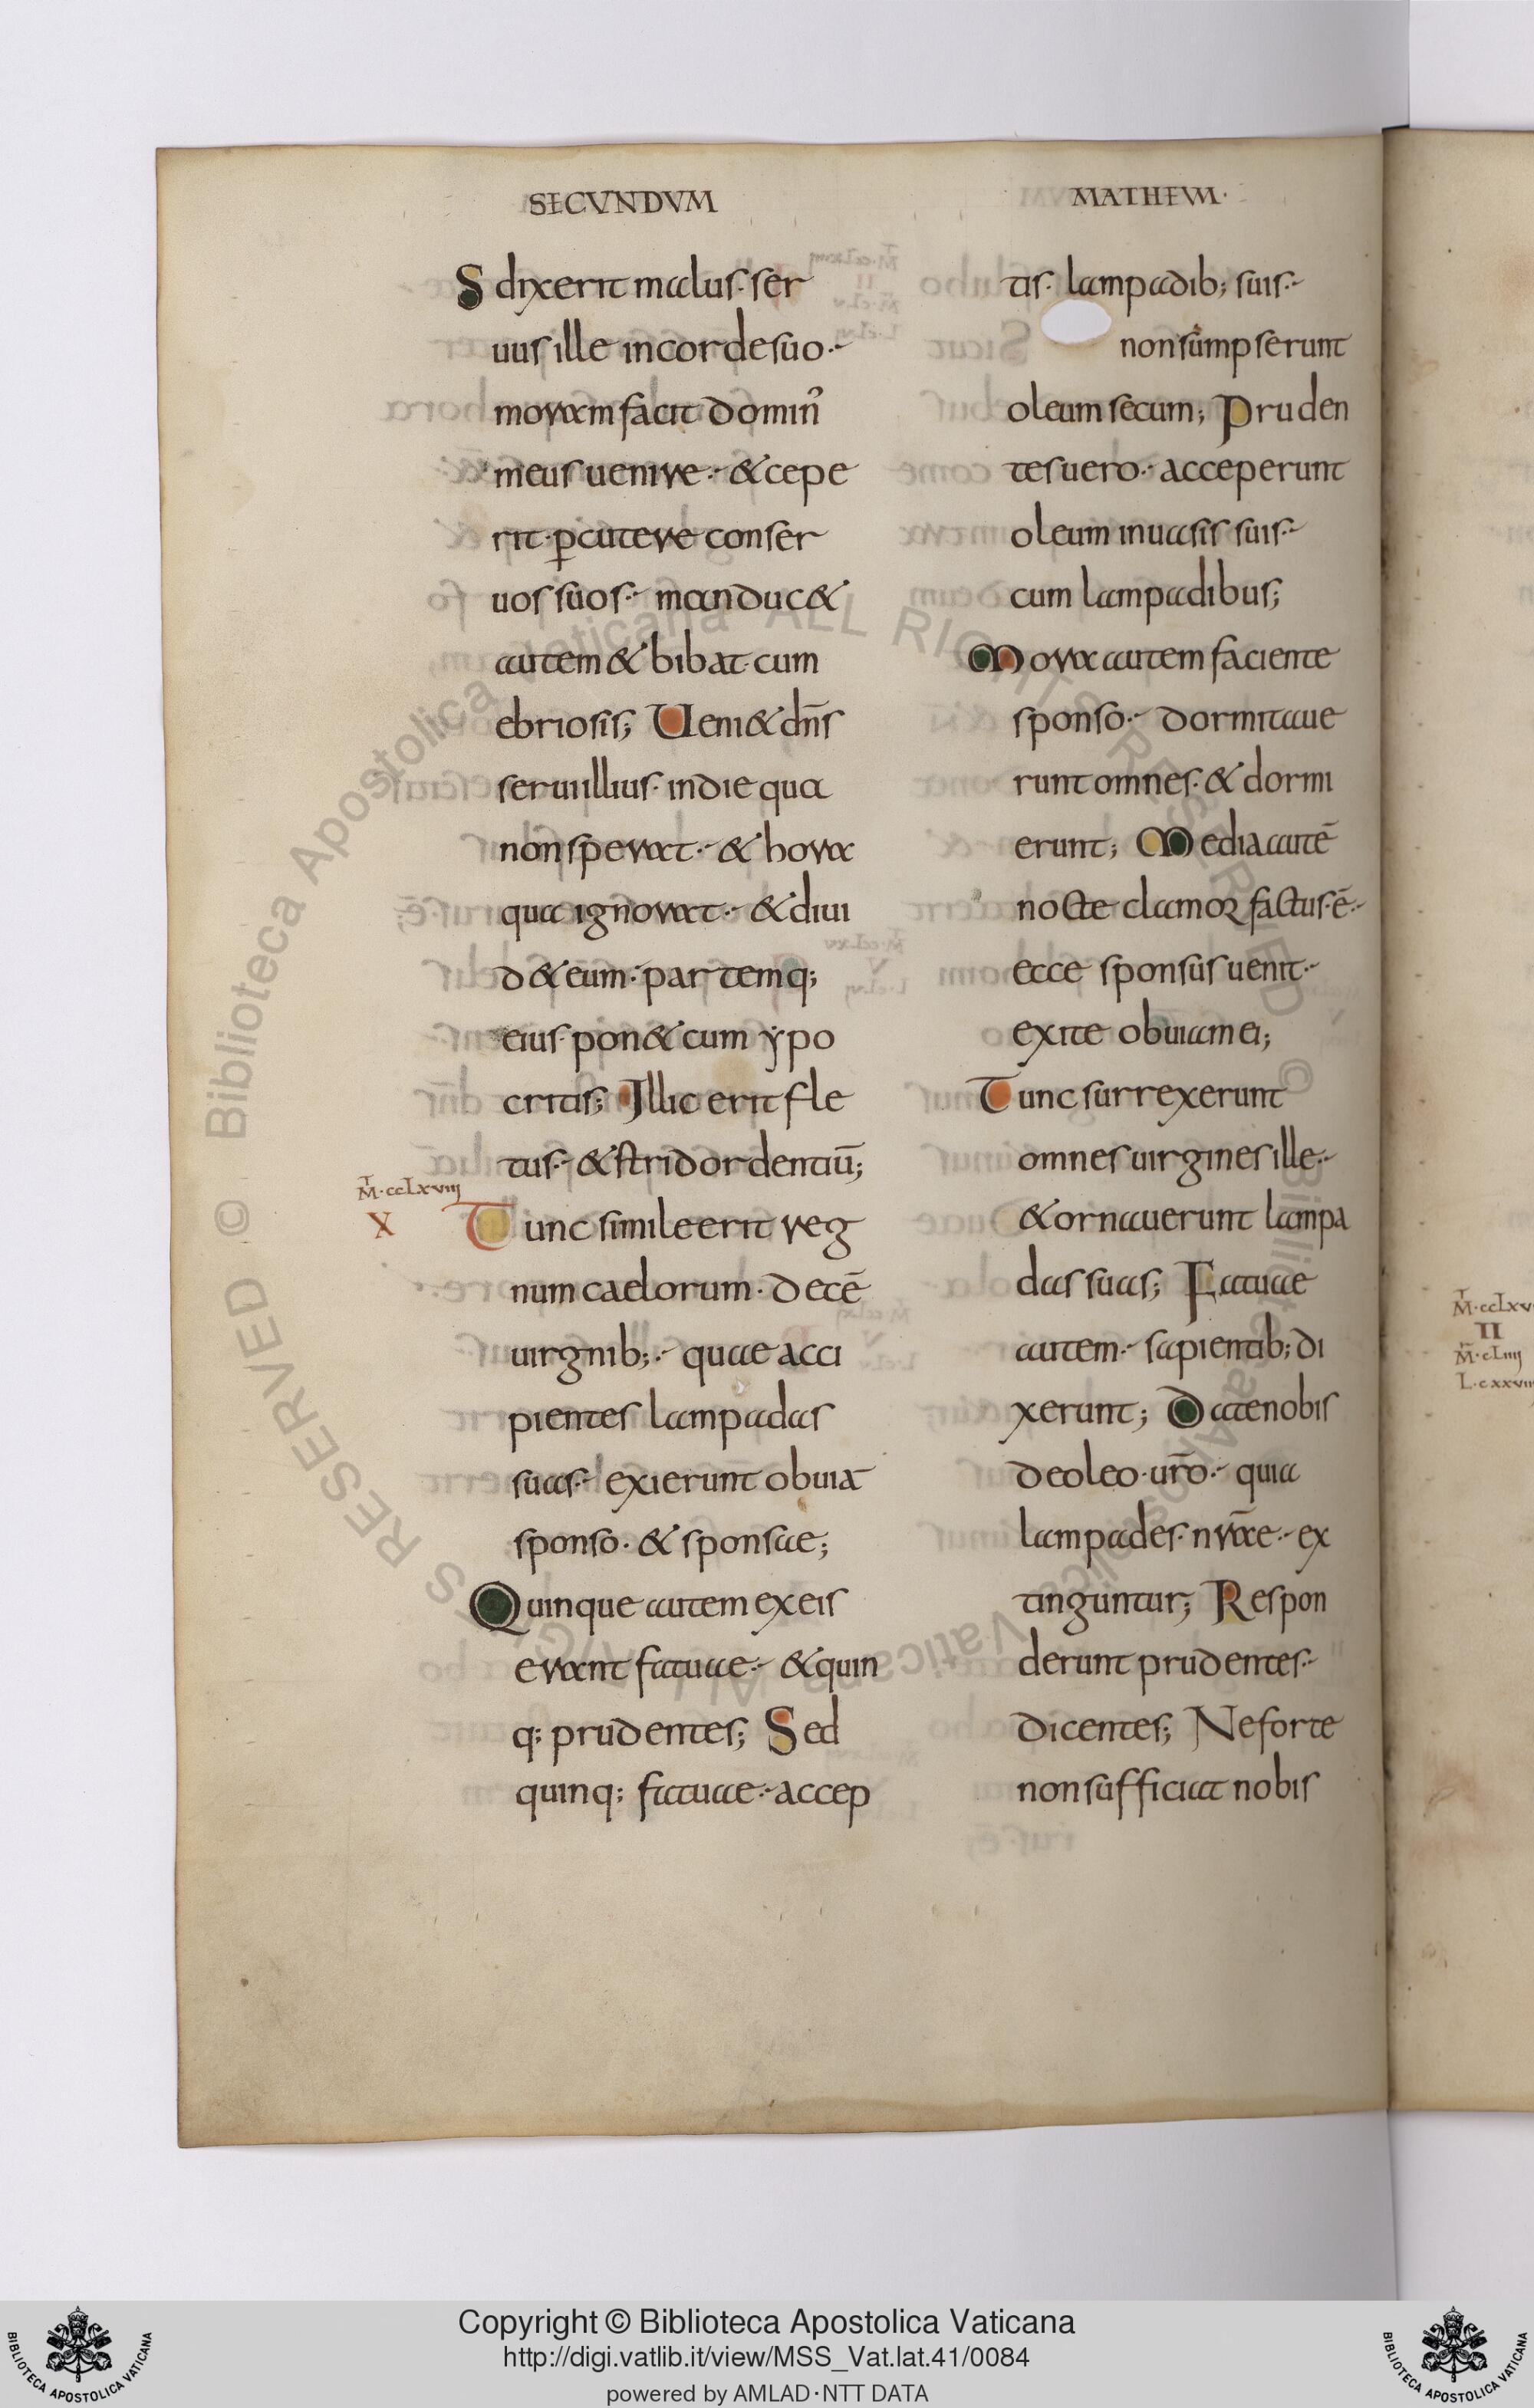 SECVNDVM
S dixerit malus· ser
uus ille in corde suo·-
moram facit domin᾽
meus uenire·- & cepe
rit· ꝑcutere conser
uos suos·- manduc&
autem & bibat· cum
ebriosis; Ueni& dn̄s
serui illius· in die qua
non sperat·- & hora
qua ignorat·- & diui
d& eum· partemq;
eius· pon& cum ypo
critis; Illic erit fle
tus·- & stridor dentiū;
M̄·ccLxviij
X
Tunc simile erit reg
num caelorum· decē
uirginib;·- quae acci
pientes lampadas
suas·- exierunt obuiā
sponso· & sponsae;
Quinque autem ex eis
erant fatuae·- & quin
q; prudentes; Sed
quinq; fatuae·- accep
MATHEUM·
tis· lampadib; suis·-
non sumpserunt
oleum secum; Pruden
tes uero·- acceperunt
oleum in uasis suis·-
cum lampadibus;
Mora autem faciente
sponso·- dormitaue
runt omnes· & dormi
erunt; Media autē
nocte clamor factus·ē·-
ecce sponsus uenit·-
exite obuiam ei;
Tunc surrexerunt
omnes uirgines ille·-
& ornauerunt lampa
das suas; Fatuae
autem·- sapientib; di
xerunt; Date nobis
de oleo· ur̄o·- quia
lampades· nr̄ae·- ex
tinguntur; Respon
derunt prudentes·-
dicentes; Ne forte
non sufficiat nobis
M̄·ccLxv
II
M̄·cLiiij
L·cxxvii
Copyright © Biblioteca Apostolica Vaticana
http://digi.vatlib.it/view/MSS_Vat.lat.41/0084
powered by AMLAD·NTT DATA
BIBLIOTECA APOSTOLICA VATICANA
BIBLIOTECA APOSTOLICA VATICANA
© Biblioteca Apostolica Vaticana ALL RIGHTS RESERVED © Biblioteca Apostolica Vaticana ALL RIGHTS RESERVED